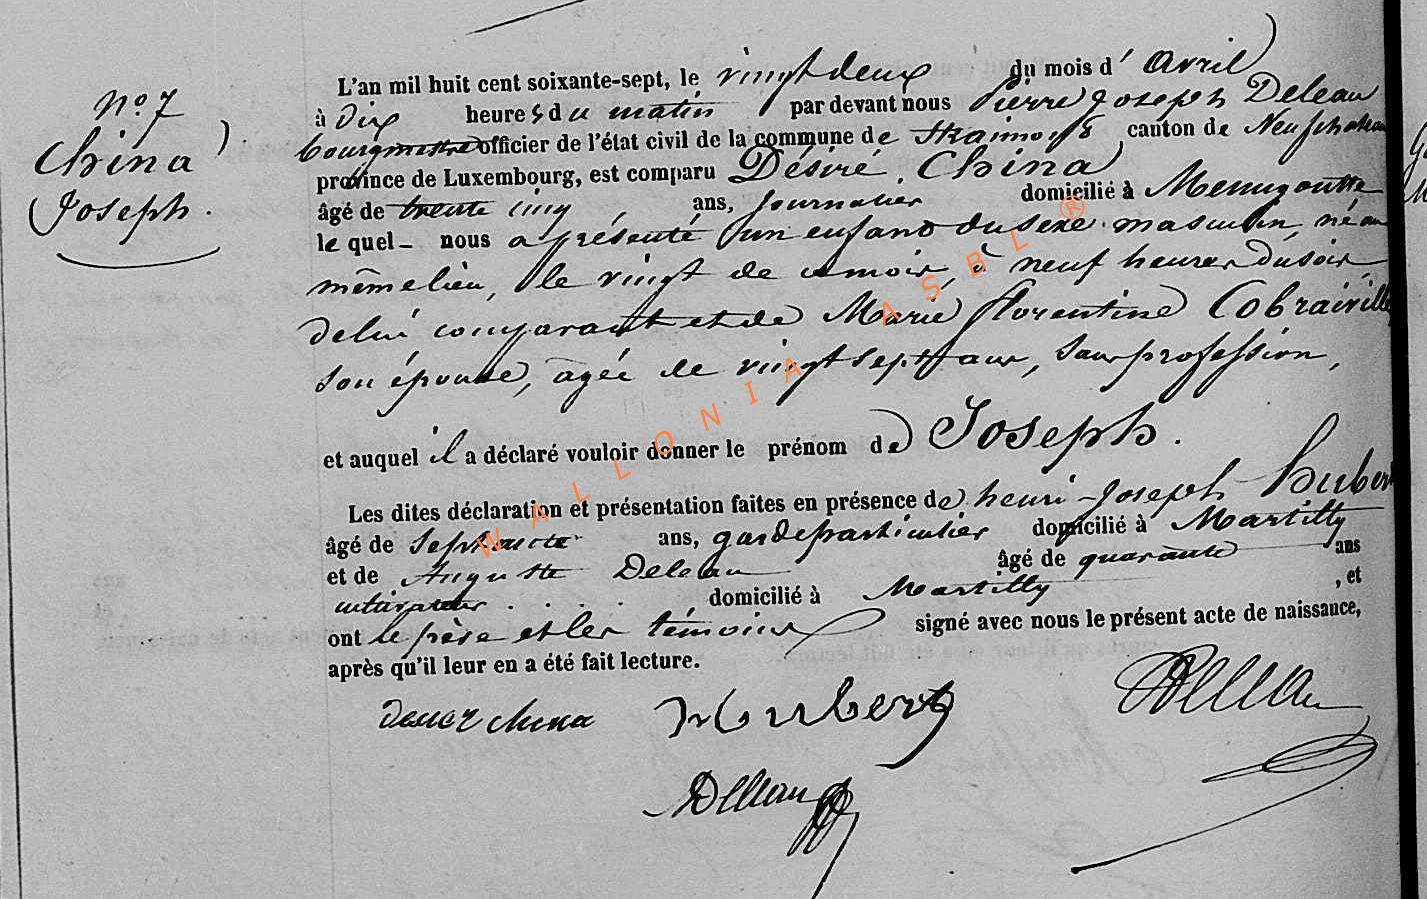 N° 7
China
Joseph.
L'an mil huit cent soixante-sept, le vingt deux du mois d'avril
à dix heures du matin par devant nous Pierre Joseph Deleau
bourgmestre officier de l'état civil de la commune de Straimont canton de Neufchateau
province de Luxembourg, est comparu Désiré China
âgé de trente cinq ans, journalier domicilié à Menugoutte
le quel nous a présenté un enfant du sexe masculin, né au
même lieu, le vingt de ce mois, à neuf heures du soir,
de lui comparant et de Marie florentine Cobraiville
son épouse, agée de vingt sept ans, sans profession,
et auquel il a déclaré vouloir donner le prénom de Joseph.
Les dites déclaration et présentation faites en présence de henri-Joseph Hubert
âgé de ans, garde particulier domicilié à Martilly
et de Auguste Deleau âgé de quarante ans
cultivateur . . . . domicilié à Martilly , et
ont le père et les témoins signé avec nous le présent acte de naissance,
après qu'il leur en a été fait lecture.
china Hubert Deleau
Deleau
WALLONIA ASBL ®